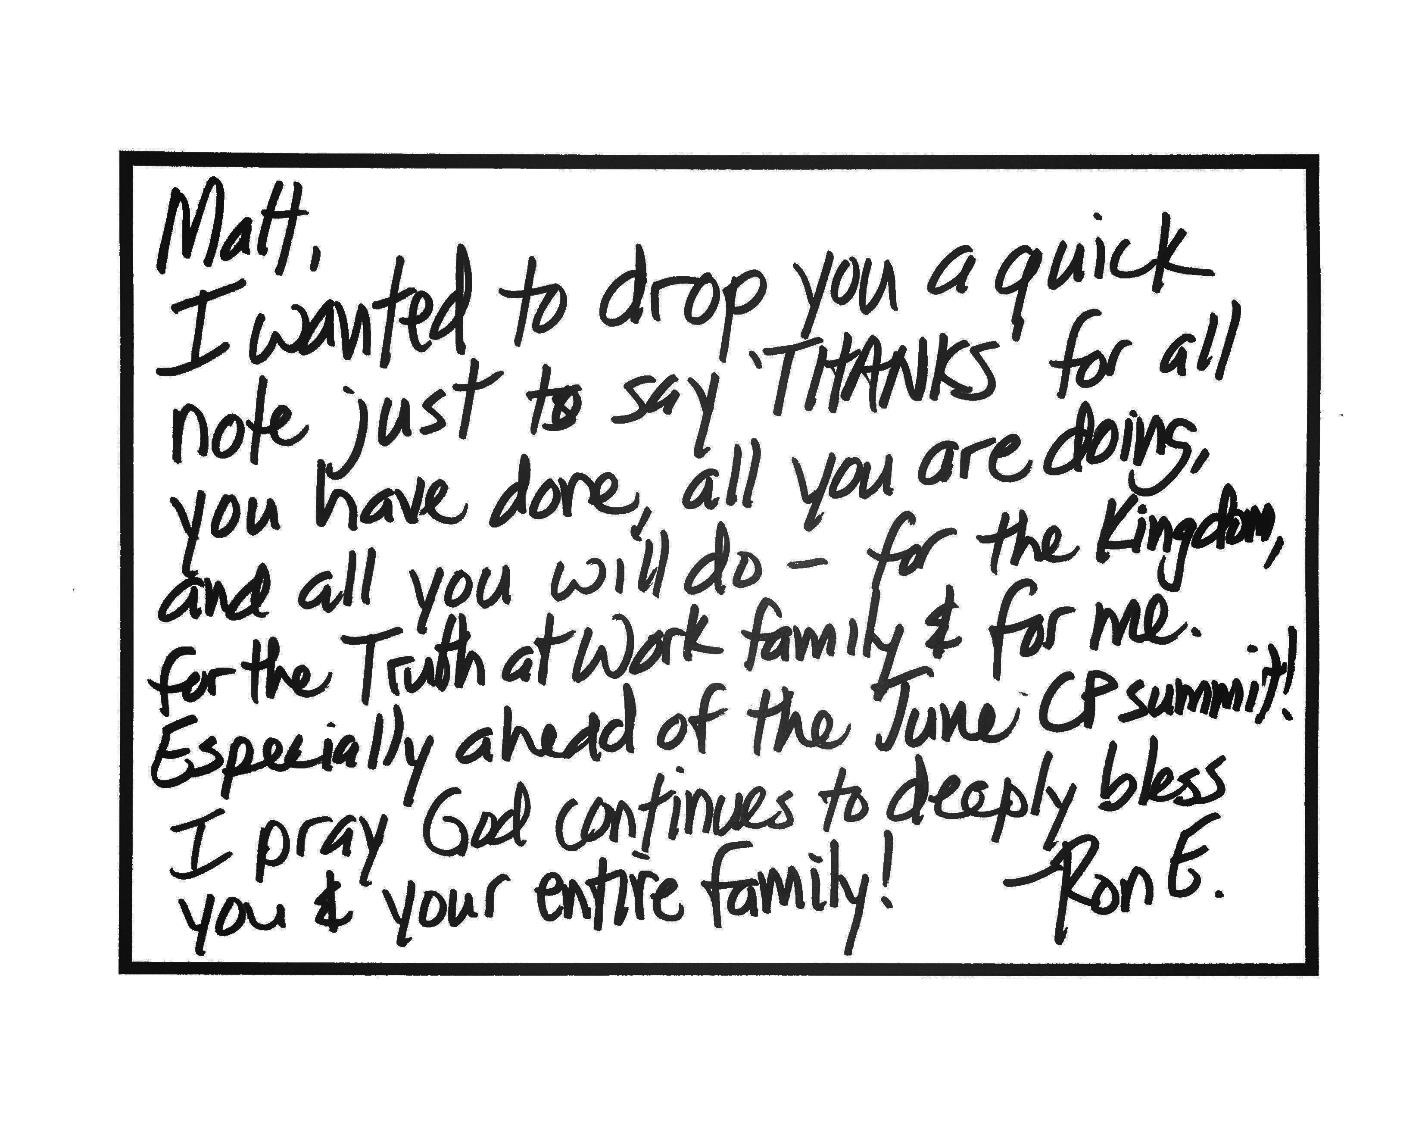 Matt,
I wanted to drop you a quick
note just to say 'THANKS for all
you have done, all you are doing,
and all you will do – for the Kingdom,
for the Truth at Work family & for me.
Especially ahead of the June CP summit!
I pray God continues to deeply bless
you & your entire family! Ron E.